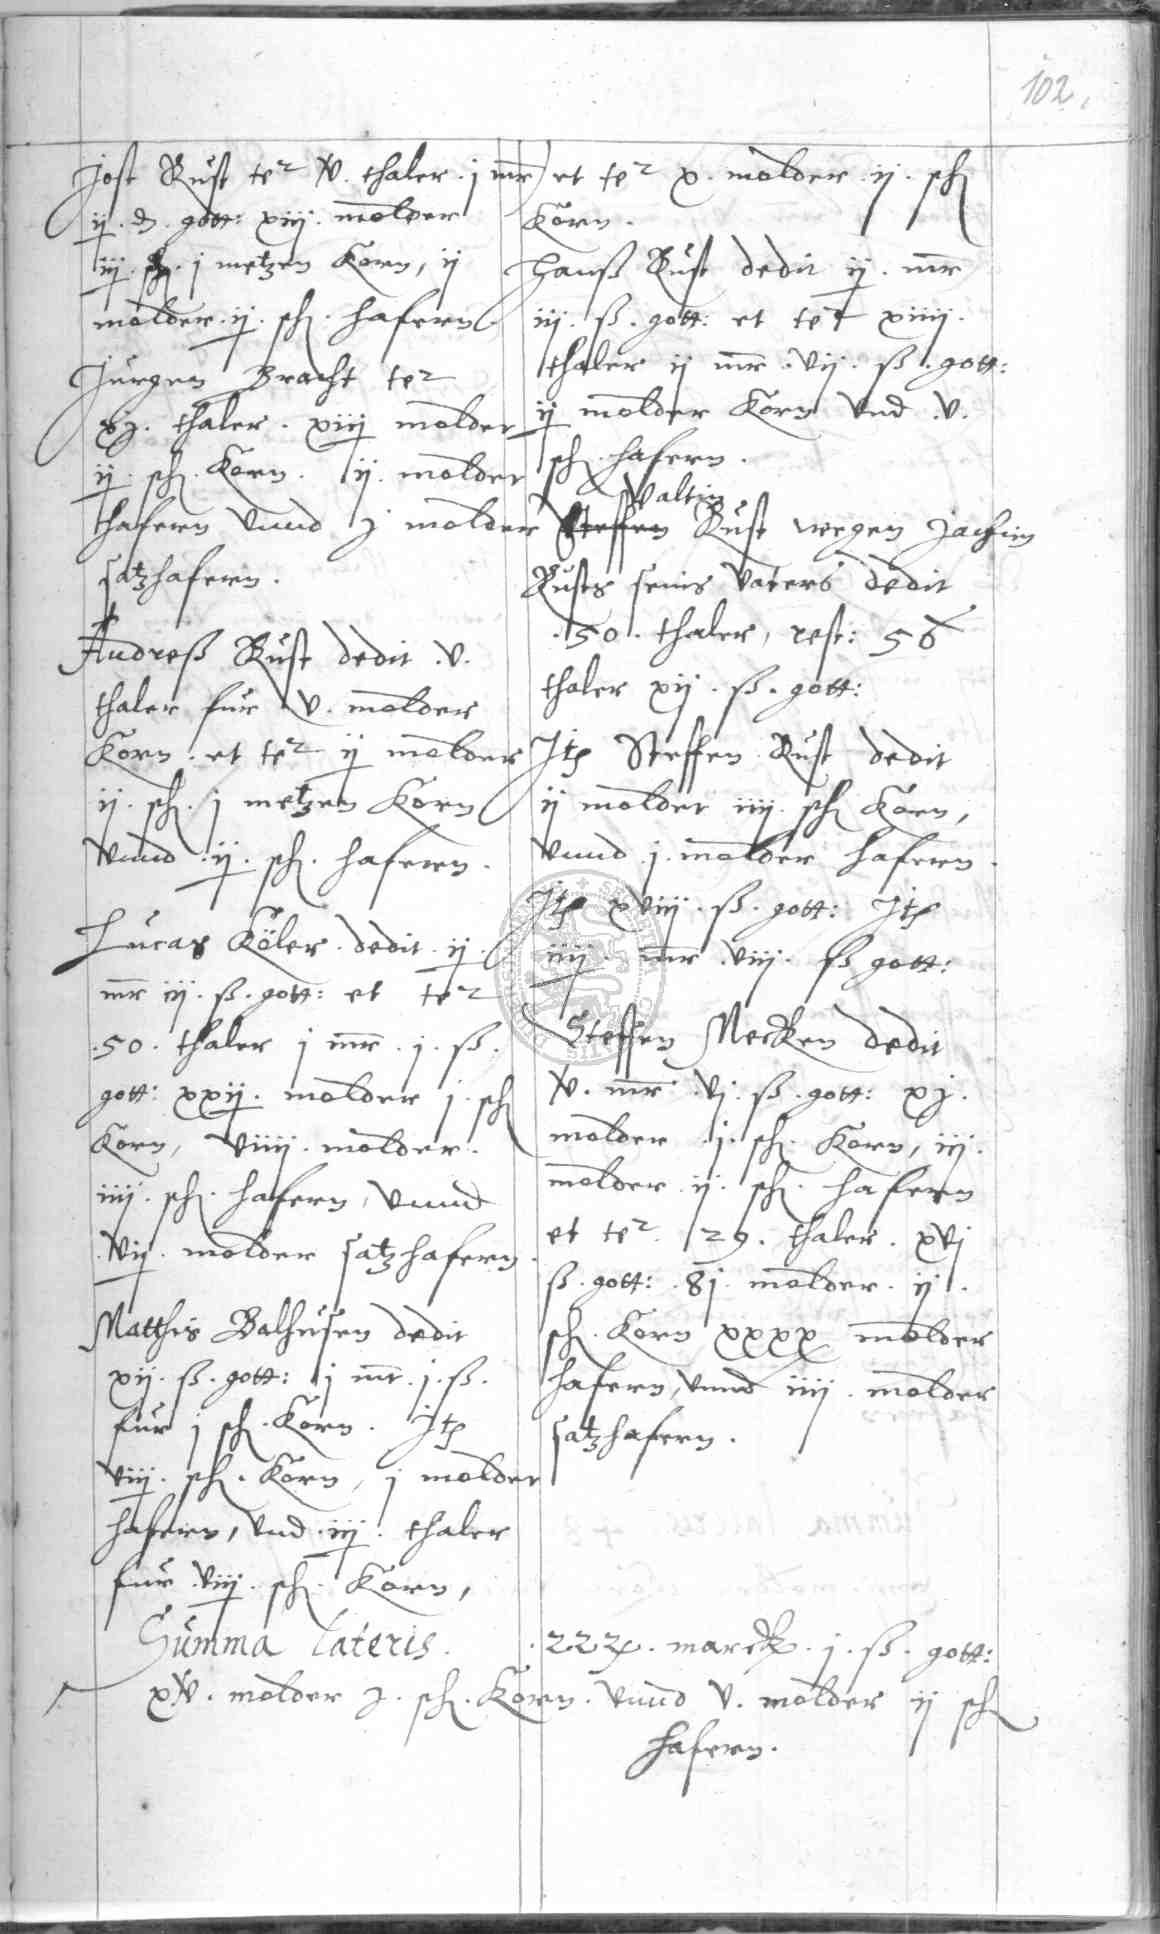 102.
Jost Rust te⁊ v. thaler. j mr
ij. ₰. gott: xiij. molder
iij. sch. j metzen Korn, ij
molder. ij. sch. hafern.
Jurgen Bracht te⁊
xj. thaler. xiij molder
ij. sch. Korn. ij. molder
hafern vnnd j molder
satzhafern.
Andreß Rust dedit .v.
thaler fur v. molder
Korn. et te⁊ ij molder
ij. sch. j metzen Korn
vnnd .ij. sch. hafern.
Lucas Köler. dedit. ij.
mr iij. ß. gott: et te⁊
.50. thaler j mr. j. ß.
gott: xxij. molder j. sch
Korn, viiij. molder.
iiij. sch. hafern, vnnd
.vij. molder satzhafern.
Matthis Balhusen dedit
xij. ß. gott: j mr. j. ß.
fur j sch. Korn. Itp
viij. sch. Korn, j molder
hafern, vnd .iij. thaler
fur .viij. sch. Korn,
et te⁊ x. molder .ij. sch
Korn.
Hanß Rust dedit ij. mr
iij. ß. gott: et te⁊ xiiij.
thaler ij mr .vij. ß. gott:
ij molder Korn vnd .v.
sch. hafern.
Valtin
Steffen Rust wegen Jachim
Rusts seins vaters dedit
.50. thaler, rest: 56
thaler xij. ß. gott:
Itp Steffen Rust dedit
ij molder iiij. sch Korn,
vnnd j. molder hafern.
Itp xviij. ß. gott: Itp
iiij. mr .viij. ß gott:
Steffen Mecken dedit
v. mr .vj. ß. gott: xj.
molder .j. sch. Korn, iij.
molder .ij. sch. hafern
et te⁊. 29. thaler. xvj
ß. gott: 8j. molder. ij.
sch. Korn xxxx molder
hafern, vnnd iiij. molder
satzhafern.
Summa lateris. .222. marck. j. ß. gott:
xv. molder j. sch. Korn. vnnd v. molder ij sch
hafern.